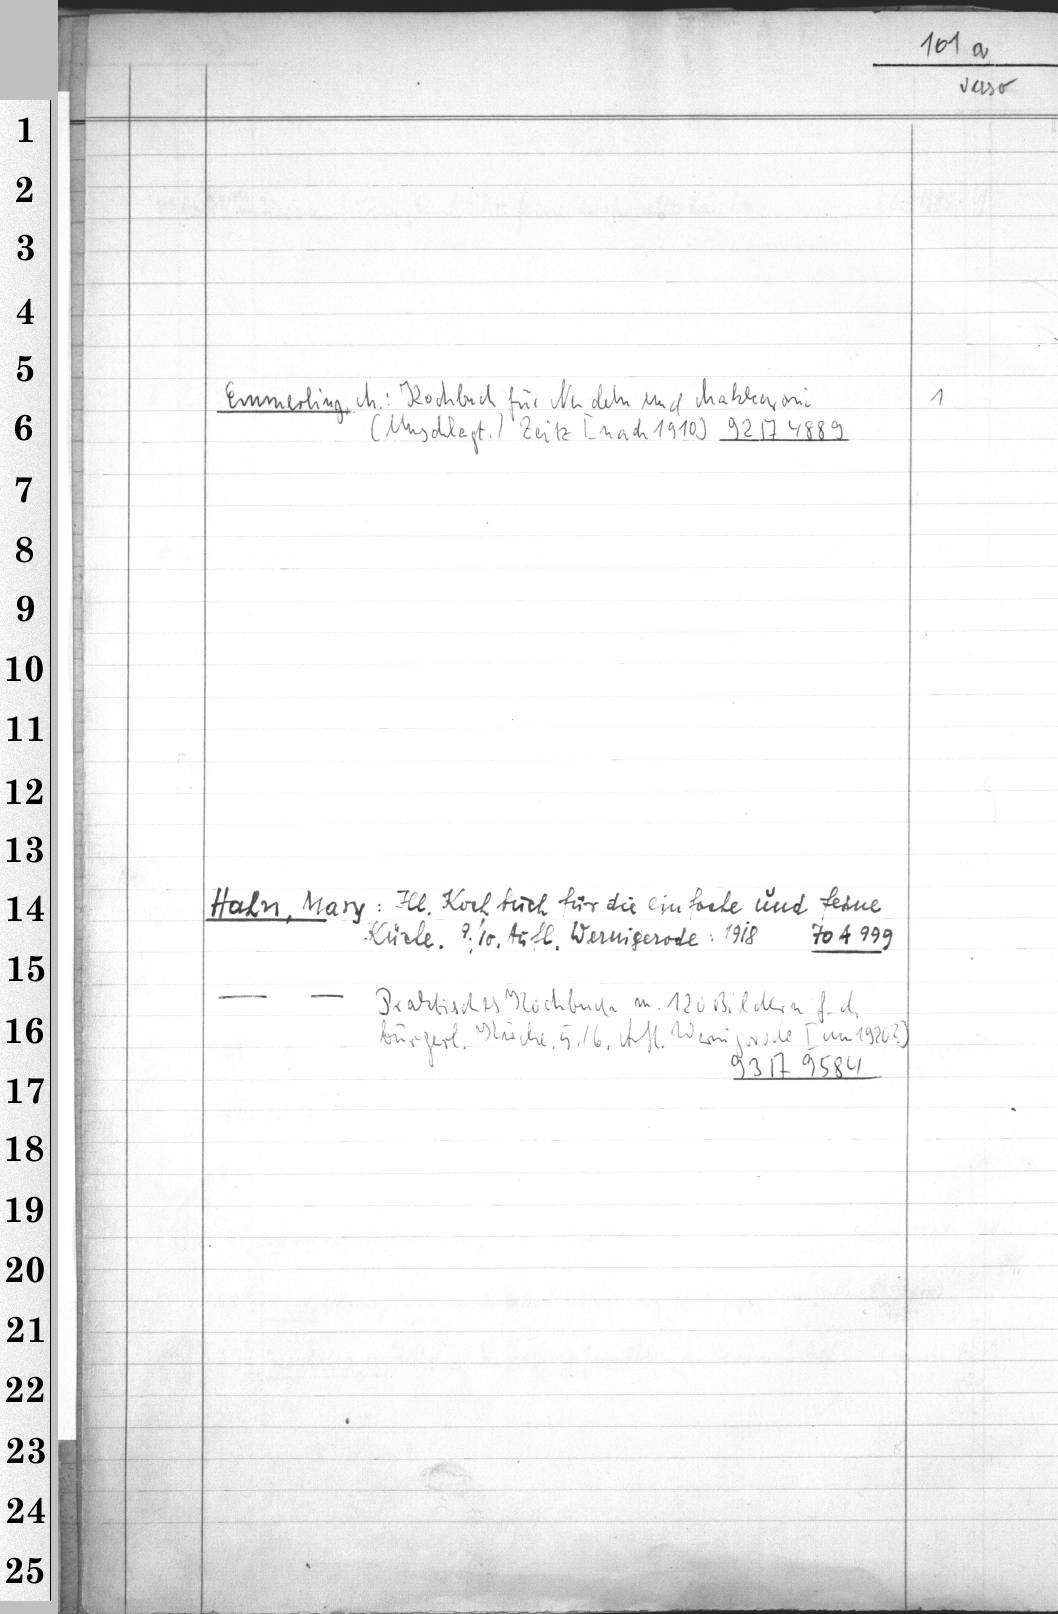 101 a
verso
1
2
3
4
5
Emmerling, M.: Kochbuch für Nudeln und Makkaroni 1
6
(Umschlagt.) Zeitz [nach 1910] 92 17 4889
7
8
9
10
11
12
13
14
Hahn, Mary: Ill. Kochbuch für die einfache und feine
Küche. 9./10. Aufl. Wernigerode: 1918 70 A 999
15
— — Praktisches Kochbuch m. 120 Bildern f. d.
16
bürgerl. Küche. 5./6. Afl. Wernigerode [um 1920?]
93 17 9584
17
18
19
20
21
22
23
24
25